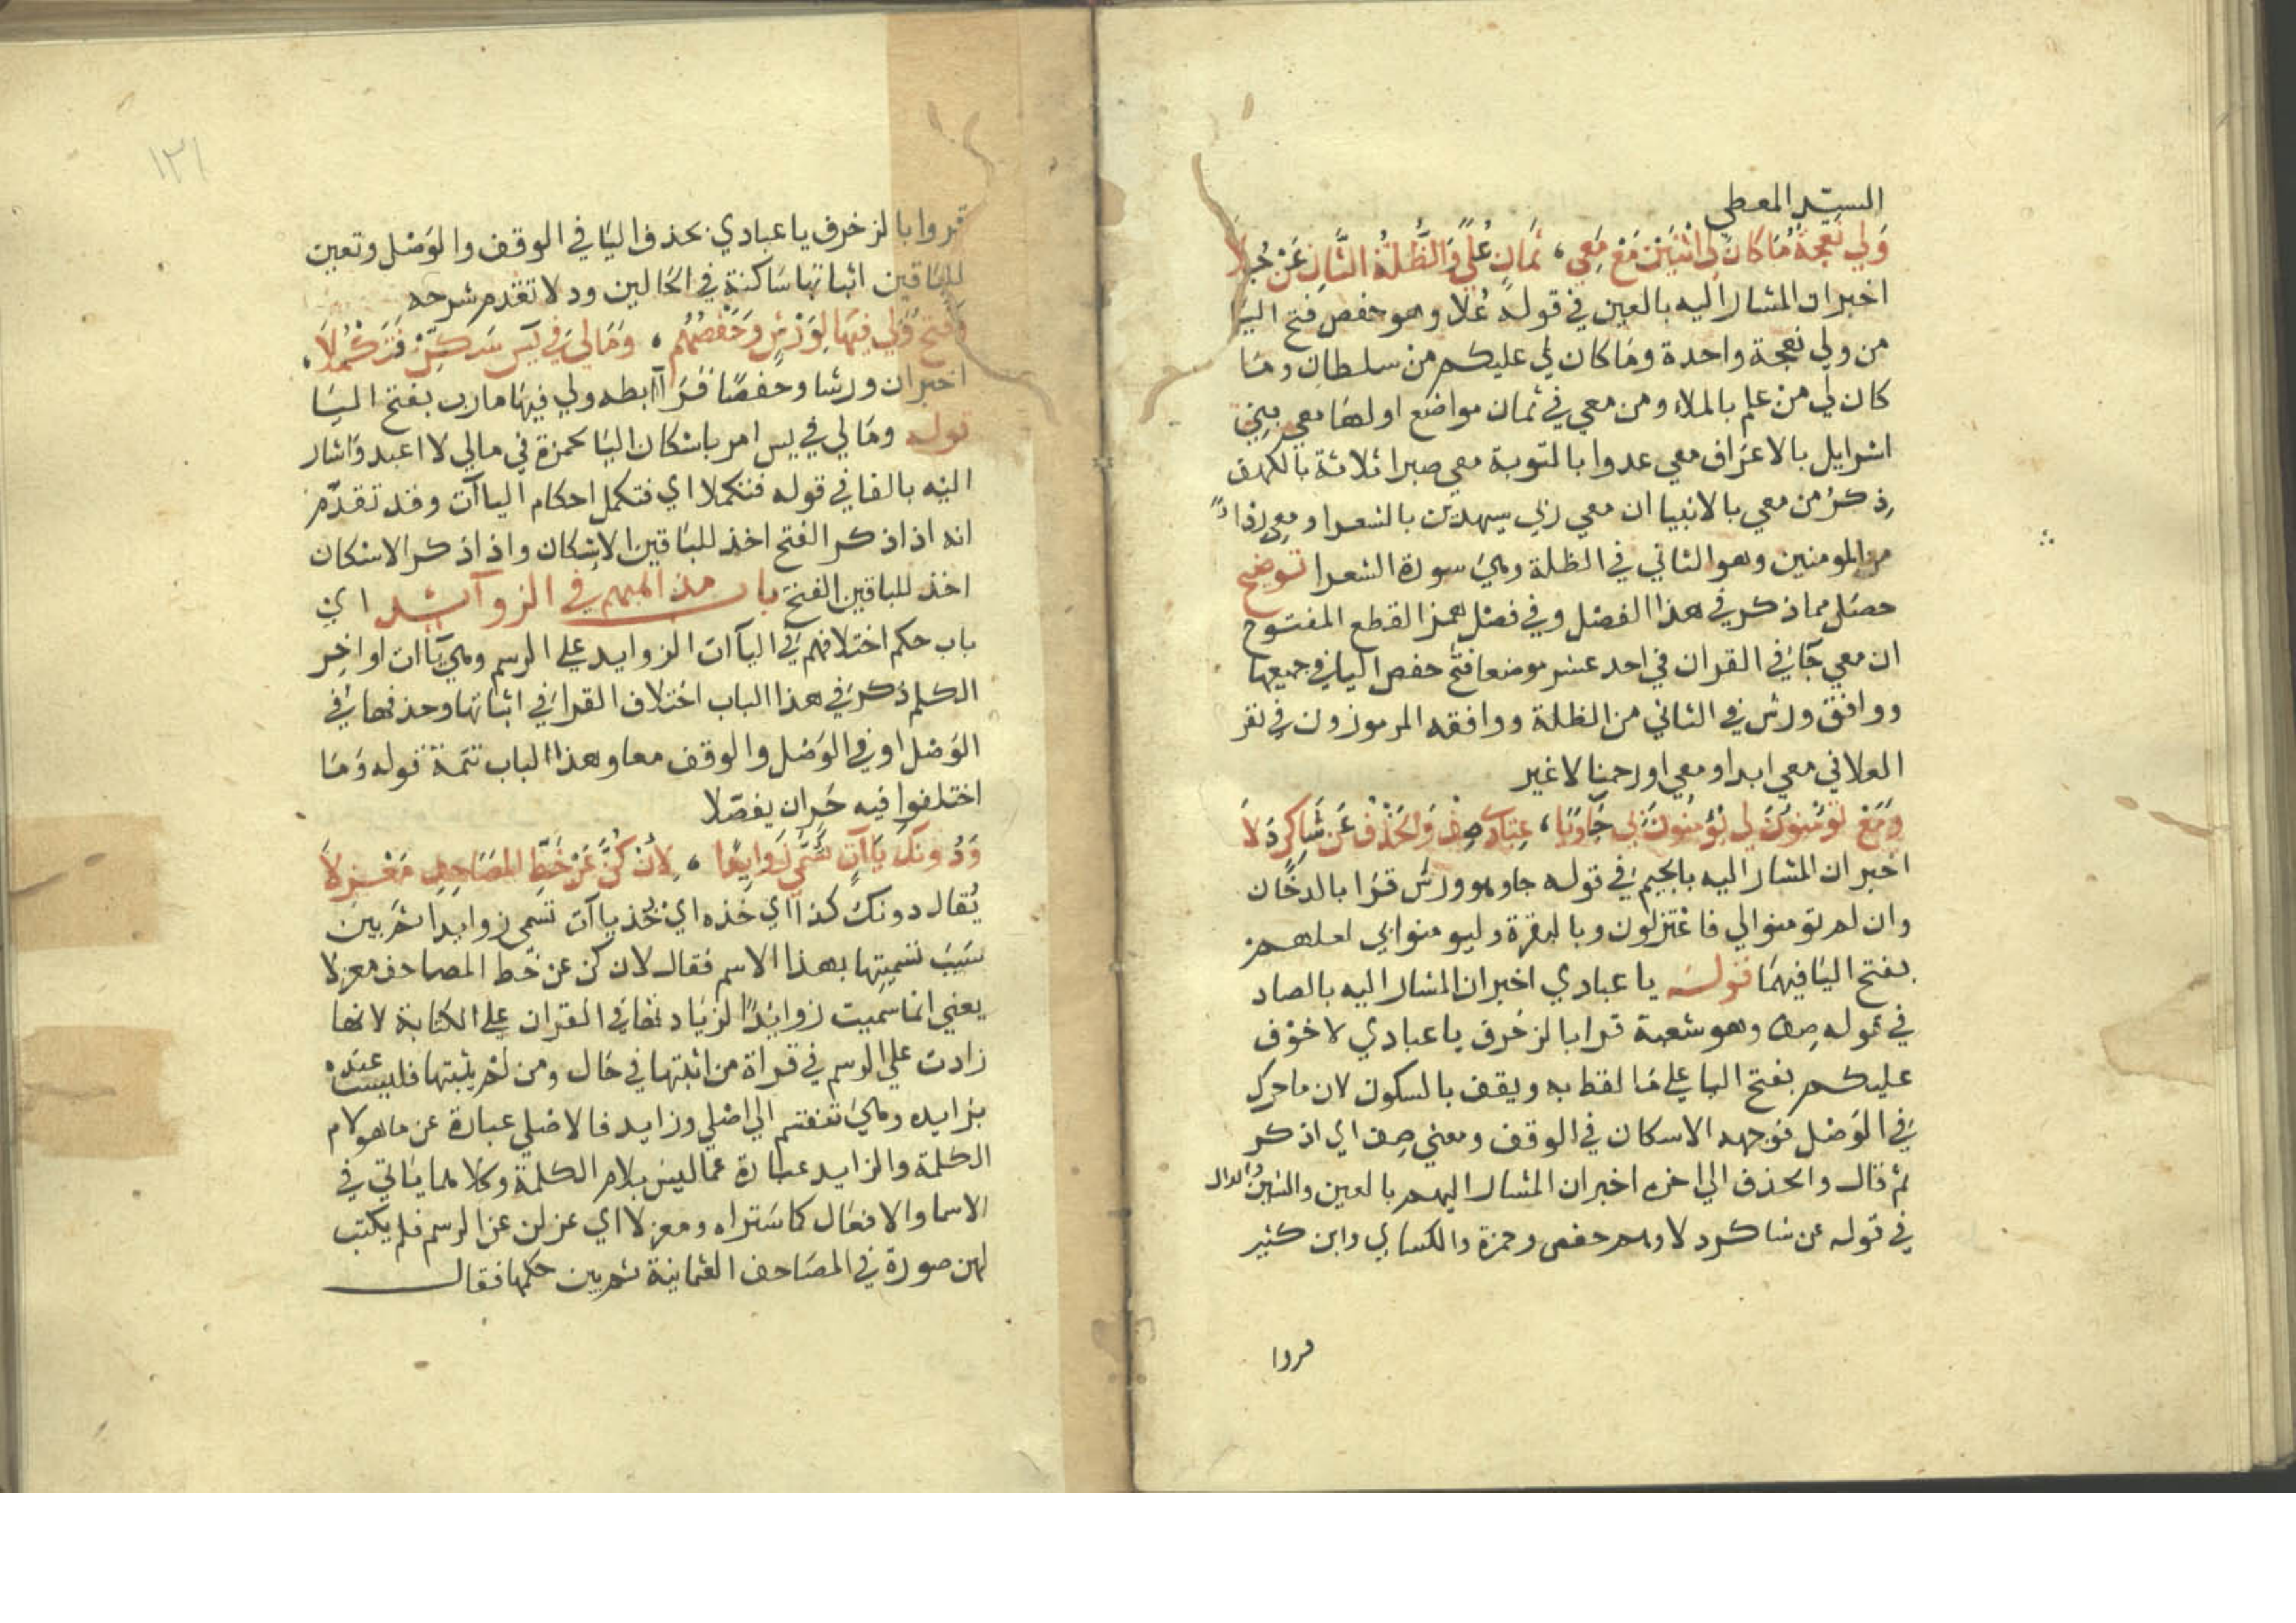 السيد المعطي
وَلِي نَعْجَةٌ مَا كَانَ لِي اثْنَيْنِ مَعْ مَعِي، ثَمَانٍ عُلًى وَالظُّلَّةُ الثَّانِ عَنْ جِلَا
اخبر ان المشار اليه بالعين في قوله عُلا وهو حفص فتح اليا
من ولي نعجة واحدة وما كان لي عليكم من سلطان وما
كان لي من علم بالملاء ومن معي في ثمان مواضع اولها معي بني
اسرايل بالاعراف معي عدوا بالتوبة معي صبرا ثلاثة بالكهف
ذكرُ من معي بالانبيا ان معي ربي سيهدين بالشعرا ومعي ردا
من المومنين وهو الثاني في الظلة وهي سورة الشعرا توضيح
حصل مما ذكر في هذا الفصل وفي فصل همز القطع المفتوح
ان معي جا في القران في احد عشر موضعا فتح حفص اليا في جميعها
ووافق ورش في الثاني من الظلة ووافقه المرموزون في نفر
العلا في معي ابدا ومعي اورحمنا لا غير
وَمَعْ تُوْمِنُونَ لِي يُؤْمِنُونَ بِي جَا وَيَا، عِبَادِ صِفْ وَالحَذْفُ عَن شَاكِرٍ دَلَا
اخبر ان المشار اليه بالجيم في قوله جا وهو ورش قرا بالدخان
وان لم تومنوا لي فاعتزلون وبالبقرة وليومنوا بي لعلهم
بفتح اليا فيهما قوله يا عبادي اخبر ان المشار اليه بالصاد
في قوله صف وهو شعبة قرا بالزخرف يا عبادي لا خوف
عليكم بفتح اليا على ما لفظ به ويقف بالسكون لان ما حرك
في الوصل فوجهه الاسكان في الوقف ومعني صف اي اذكر
ثم قال والحذف الي اخره اخبر ان المشار اليهم بالعين والشين والدال
في قوله عن شاكر دلا وهم حفص وحمزة والكسايي وابن كثير
قروا
١٣١
قروا بالزخرف يا عبادي بحذف اليا في الوقف والوصل وتعين
للباقين اثباتها ساكنة في الحالين ودلا تقدم شرحه
وَفَتْحُ وَلِي فِيهَا لِوَرْشٍ وَحَفْصِهِم، وَمَالِيَ فِي يس سَكِّنْ فَتَكْمُلَا،
اخبر ان ورشا وحفصا قرآ ابطه ولي فيها مارب بفتح اليا
قوله ومالي في يس امر باسكان اليا لحمزة في مالي لا اعبد واشار
اليه بالفا في قوله فتكملا اي فتكمل احكام الياآت وقد تقدم
انه اذا ذكر الفتح اخذ للباقين الاسكان واذا ذكر الاسكان
اخذ للباقين الفتح باب مذاهبهم في الزوآئد اي
باب حكم اختلافهم في الياآت الزوايد على الرسم وهي ياآت اواخر
الكلم ذكر في هذا الباب اختلاف القرا في اثباتها وحذفها في
الوصل او في الوصل والوقف معا وهذا الباب تتمة قوله وما
اختلفوا فيه حَرٍ ان يفصلا
وَدُونَكَ يَاآتٍ تُسَمَّى زَوَايِدًا، لِأَنْ كُنَّ عَنْ خَطِّ المَصَاحِفِ مَعْزِلَا
يُقال دونك كذا اي خذه اي خذ ياآت تسمى زوايدا ثم بين
سبب تسميتها بهذا الاسم فقال لان كن عن خط المصاحف معزلا
يعني انما سميت زوايدًا لزيادتها في القران على الكتابة لانها
زادت على الرسم في قراة من اثبتها في حال ومن لم يثبتها فليست عنده
بزايده وهي تنقسم الي اصلي وزايد فالاصلي عبارة عن ما هو لام
الكلمة والزايد عبارة عما ليس بلام الكلمة وكلاهما ياتي في
الاسما والافعال كما ستراه ومعزلا اي عزلن عن الرسم فلم يكتب
لهن صورة في المصاحف العثمانية ثم بين حكمها فقال